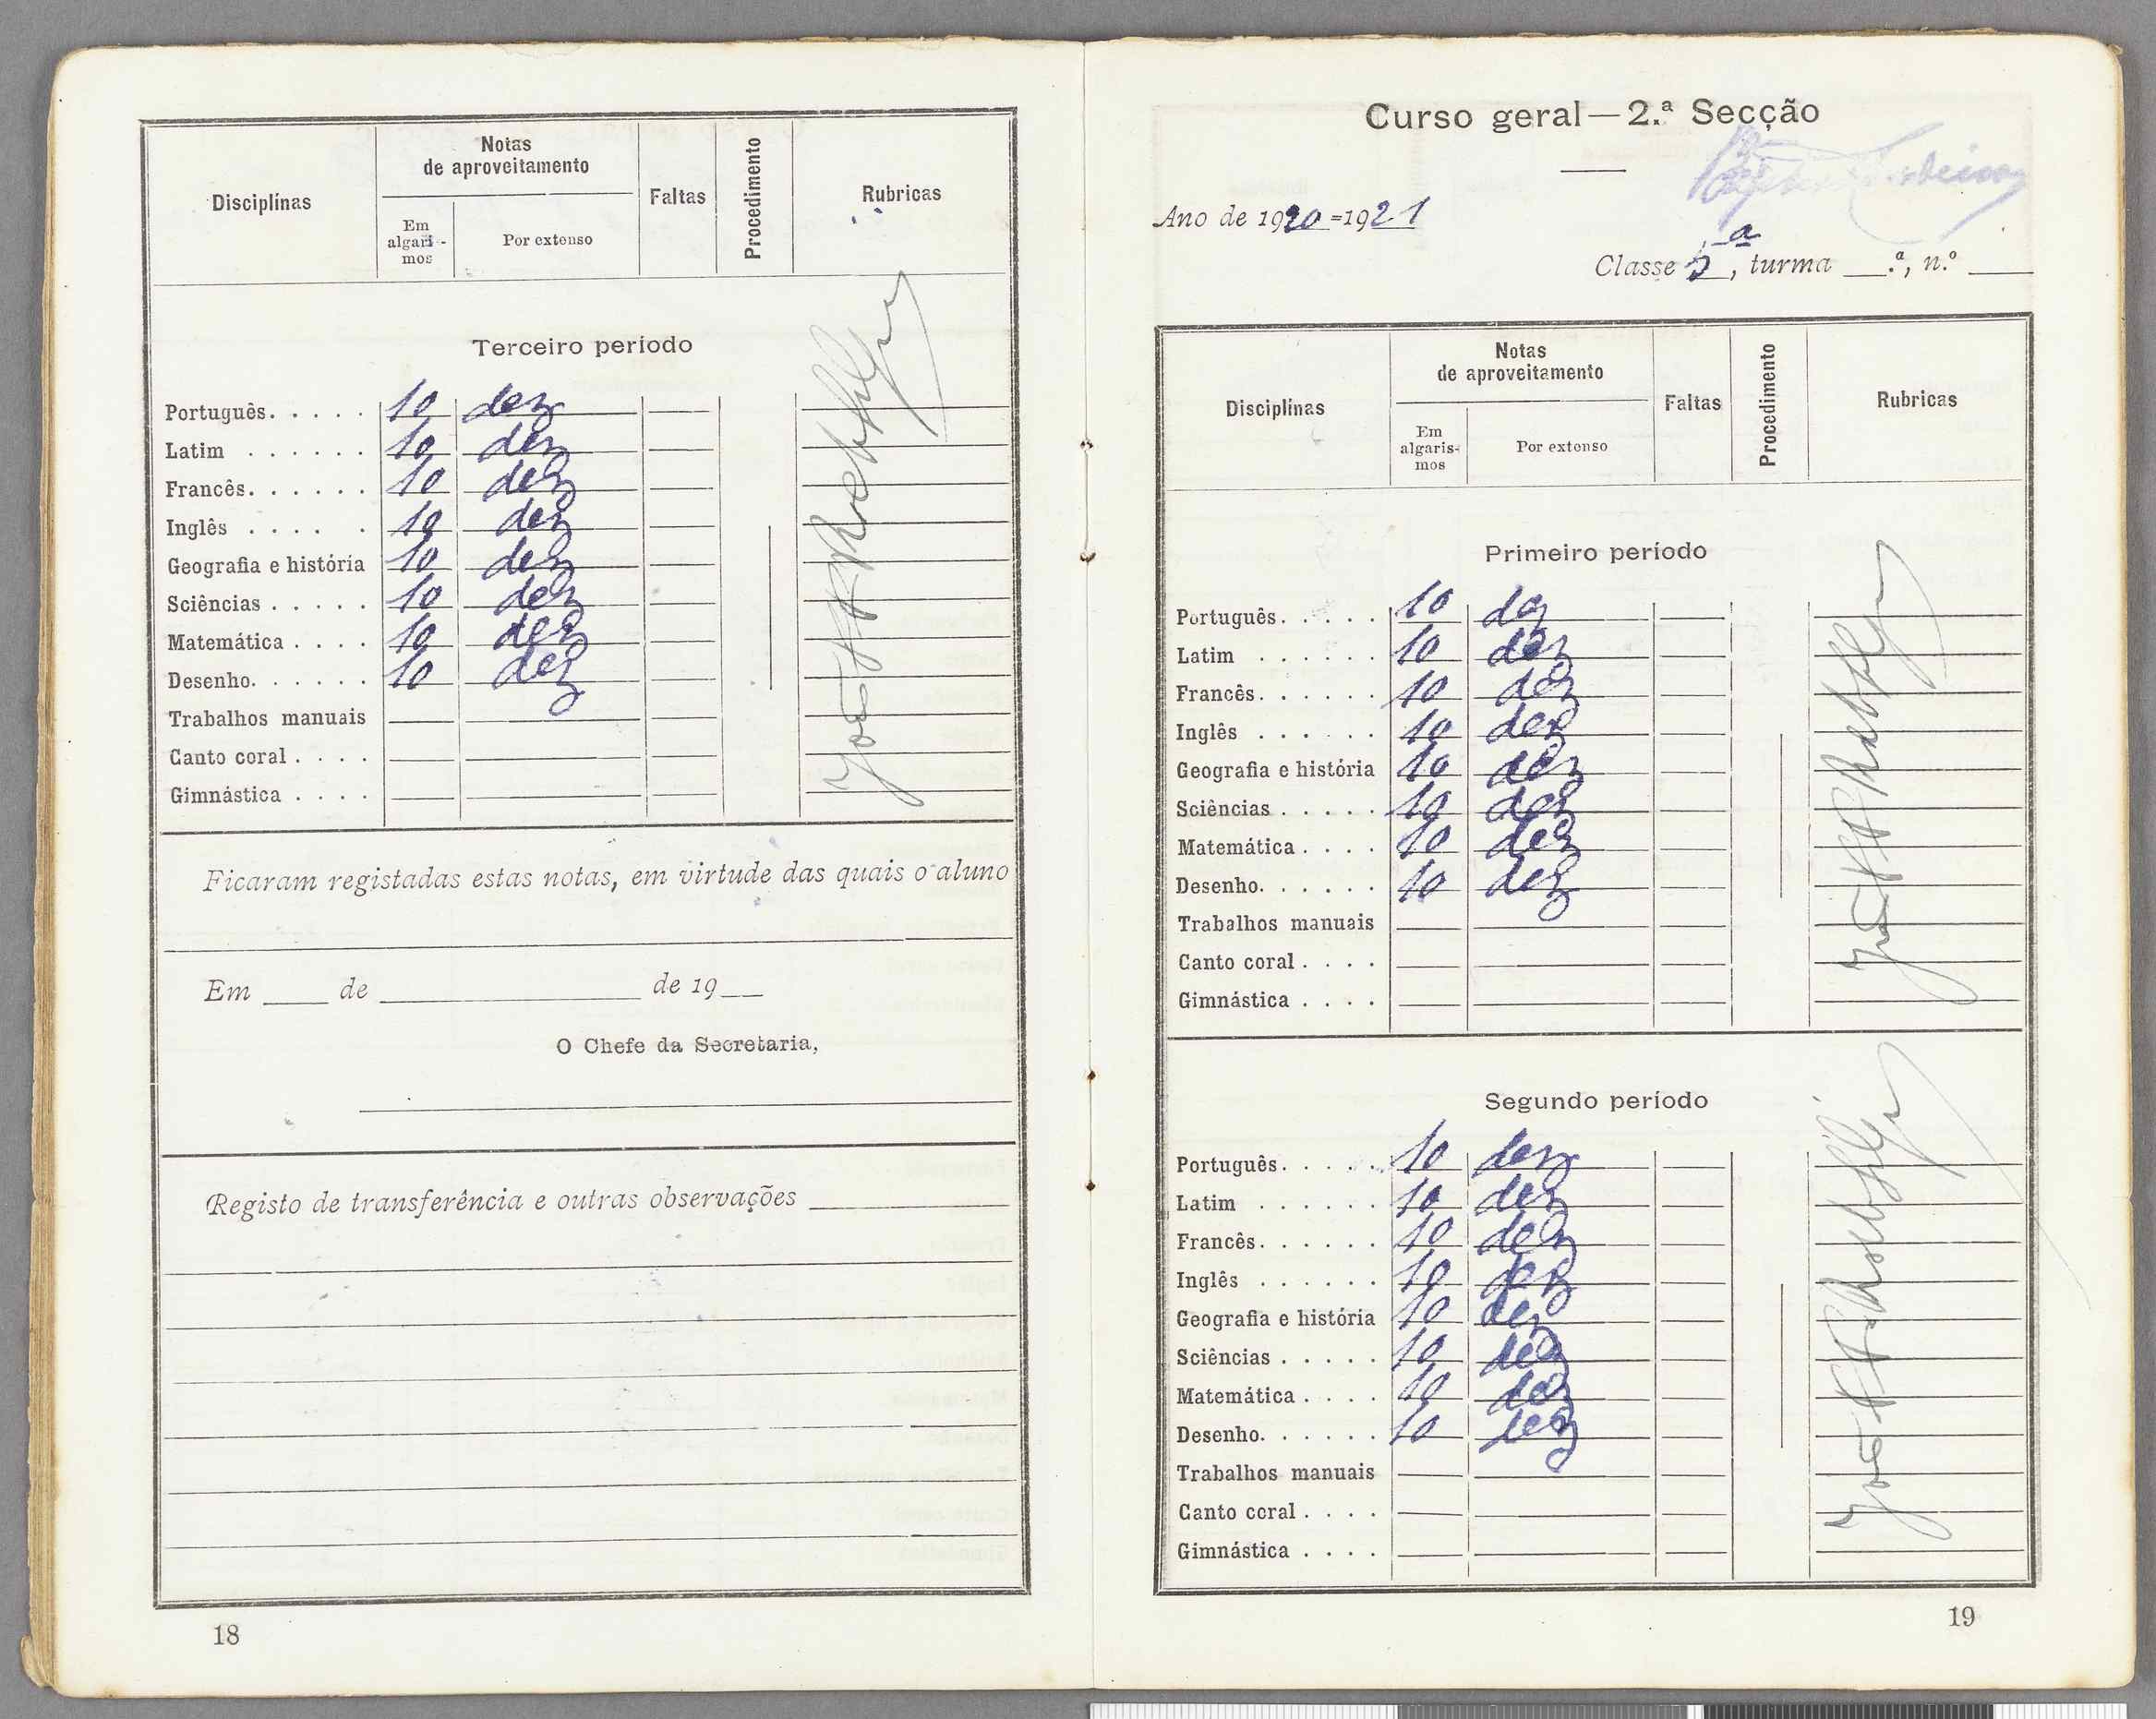 Disciplinas
Notas
de aproveitamento
Em
algaris-
mos
Por extenso
Faltas
Procedimento
Rubricas
Terceiro período
Português. . . . . 10 dez
Latim . . . . . . 10 dez
Francês. . . . . . 10 dez
Inglês . . . . . 10 dez
Geografia e história 10 dez
Sciências . . . . . 10 dez
Matemática . . . . 10 dez
Desenho. . . . . . 10 dez
Trabalhos manuais
Canto coral . . . .
Gimnástica . . . .
Ficaram registadas estas notas, em virtude das quais o aluno
Em ____ de ____ de 19__
O Chefe da Secretaria,
Registo de transferência e outras observações
18
Curso geral—2.ª Secção
Ano de 1920=1921
Classe 5ª, turma ___.ª, n.º ____
Disciplinas
Notas
de aproveitamento
Em
algaris-
mos
Por extenso
Faltas
Procedimento
Rubricas
Primeiro período
Português. . . . . 10 dez
Latim . . . . . . 10 dez
Francês. . . . . . 10 dez
Inglês . . . . . . 10 dez
Geografia e história 10 dez
Sciências . . . . . 10 dez
Matemática . . . . 10 dez
Desenho. . . . . . 10 dez
Trabalhos manuais
Canto coral . . . .
Gimnástica . . . .
Segundo período
Português. . . . . 10 dez
Latim . . . . . . 10 dez
Francês. . . . . . 10 dez
Inglês . . . . . . 10 dez
Geografia e história 10 dez
Sciências . . . . . 10 dez
Matemática . . . . 10 dez
Desenho. . . . . . 10 dez
Trabalhos manuais
Canto coral . . . .
Gimnástica . . . .
19